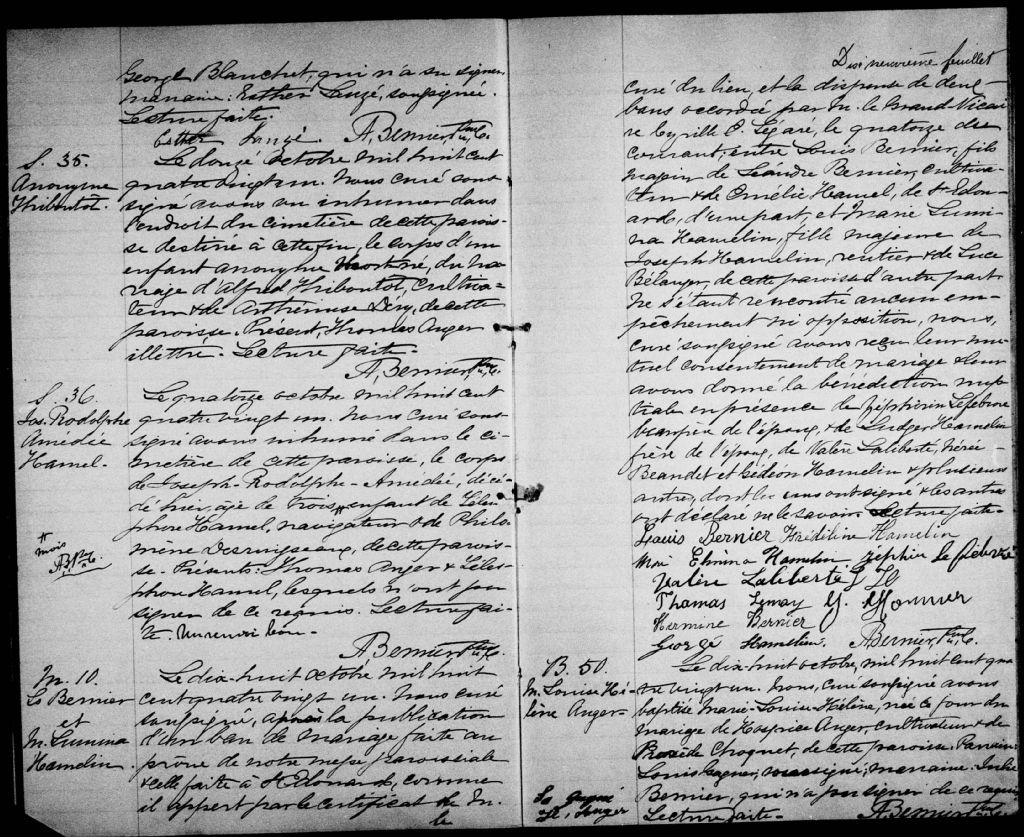 George Blanchet, qui n'a su signer,
marraine: Esther Lauzé, soussignée.
Lecture faite.
Esther Lauzé A. Bernier, Ptre C.
S. 35.
Anonyme
Thiboutot.
Le douze octobre mil huit cent
quatre vingt un. Nous curé sous-
signé avons vu inhumer dans
l'endroit du cimetière de cette parois-
se destiné à cette fin, le corps d'un
enfant anonyme mort né, du ma-
riage d'Alfred Thiboutot, cultiva-
teur & de Arthémise Déry, de cette
paroisse. Présent, Thomas Anger
illettré. Lecture faite.
A. Bernier, Ptre C.
S. 36.
Jos. Rodolphe
Amédée
Hamel.
Le quatorze octobre mil huit cent
quatre vingt un. Nous curé sous-
signé avons inhumé dans le ci-
metière de cette paroisse, le corps
de Joseph-Rodolphe-Amédée, décé-
dé hier, âgé de trois, enfant de Téles-
phore Hamel, navigateur & de Philo-
mène Desruisseaux, de cette parois-
se. Présents: Thomas Anger & Téles-
phore Hamel, lesquels n'ont pu
signer de ce requis. Lecture fai-
te. Un renvoi bon.
mois
A. Bernier, Ptre C.
M. 10.
Ls Bernier
et
M. Lumina
Hamelin.
Le dix-huit octobre mil huit
cent quatre vingt un. Nous curé
soussigné, après la publication
d'un ban de mariage faite au
prône de notre messe paroissiale
& celle faite à St Edouard, comme
il appert par le certificat de M.
le
Dix, neuvième feuillet
curé du lieu, et la dispense de deux
bans accordée par M. le Grand Vicai-
re Cyrille E. Légaré, le quatorze du
courant, entre Louis Bernier, fils
majeur de Léandre Bernier, cultiva-
teur & de Emélie Hamel, de St Edou-
ard, d'une part, et Marie Lumi-
na Hamelin, fille majeure de
Joseph Hamelin, rentier & de Luce
Bélanger, de cette paroisse d'autre part.
Ne s'étant rencontré aucun em-
pêchement ni opposition, nous,
curé soussigné avons reçu leur mu-
tuel consentement de mariage & leur
avons donné la bénédiction nup-
tiale en présence de Zéphirin Lefebvre
beaufrère de l'époux, & de Ludger Hamelin
frère de l'épouse, de Valère Laliberté, Nérée
Beaudet et Gédéon Hamelin & plusieurs
autres, dont les uns ont signé & les autres
ont déclaré ne le savoir. Lecture faite.
Louis Bernier Hamelin
Hamelin Zéphirin Lefebvre
Valère Laliberté
Thomas Lemay
Hermine Bernier
George Hamelin. A. Bernier, Ptre C.
B. 50.
M. Louise Hé-
lène Anger.
Le dix-huit octobre, mil huit cent qua-
tre vingt un. Nous, curé soussigné avons
baptisé Marie-Louise-Hélène, née ce jour du
mariage de Hospice Anger, cultivateur & de
Choquet, de cette paroisse. Parrain
Louis Gagné, soussigné, marraine. Julie
Bernier, qui n'a pu signer de ce requis
Lecture faite. A. Bernier, Ptre C.
Ls Gagné
Anger